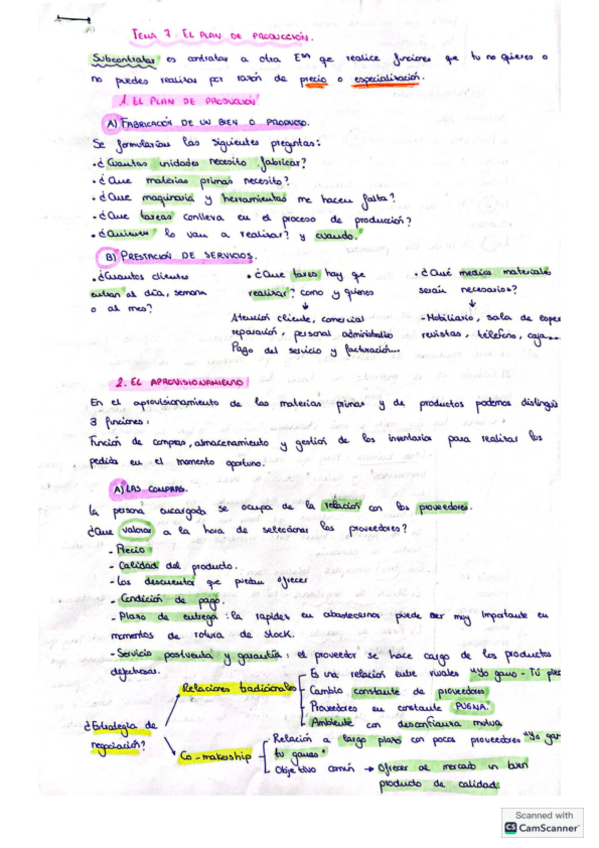 TEMA 7. EL PLAN DE PRODUCCIÓN.
Subcontratar es contratar a otra Esa que realice funciones que tu no quieres o
no puedes realizar por razón de precio o especialización.
1. EL PLAN DE PRODUCCIÓN
A) FABRICACIÓN DE UN BIEN O PRODUCTO.
Se formularían las siguientes preguntas:
• ¿Cuantas unidades necesito fabricar?
• ¿Que materias primas necesito?
• ¿Que maquinaria y herramientas me hacen falta?
• ¿Que tareas conlleva en el proceso de producción?
• ¿Quienes lo van a realizar? y cuando.
B) PRESTACIÓN DE SERVICIOS.
• ¿Cuantos clientes
entran al día, semana
o al mes?
• ¿Que tareas hay que
realizar? como y quienes
↓
Atención cliente, comercial
reparación, personal administrativo
Pago del servicio y facturación...
• ¿Qué medios materiales
serían necesarios?
↓
- Mobiliario, sala de esper
revistas, telefono, caja...
2. EL APROVISIONAMIENTO
En el aprovisionamiento de las materias primas y de productos podemos distingui
3 funciones:
Función de compras, almacenamiento y gestión de los inventarios para realizar los
pedidos en el momento oportuno.
A) LAS COMPRAS.
La persona encargada se ocupa de la relación con los proveedores.
¿Que valorar a la hora de seleccionar los proveedores?
- Precio
- Calidad del producto.
- Los descuentos que puedan ofrecer
- Condición de pago.
- Plazo de entrega: la rapidez en abastecernos puede ser muy importante en
momentos de rotura de stock.
- Servicio postventa y garantía: el proveedor se hace cargo de los productos
defectuosos.
¿Estrategia de
negociación?
Relaciones tradicionales
- Es una relación entre rivales "Yo gano - Tú pier
- Cambio constante de proveedores
- Proveedores en constante PUGNA.
- Ambiente con desconfianza mutua
Co-makership
- Relación a largo plazo con pocos proveedores "Yo gan
tu ganas"
- Objetivo común → Ofrecer al mercado un buen
producto de calidad.
Scanned with
CS CamScanner